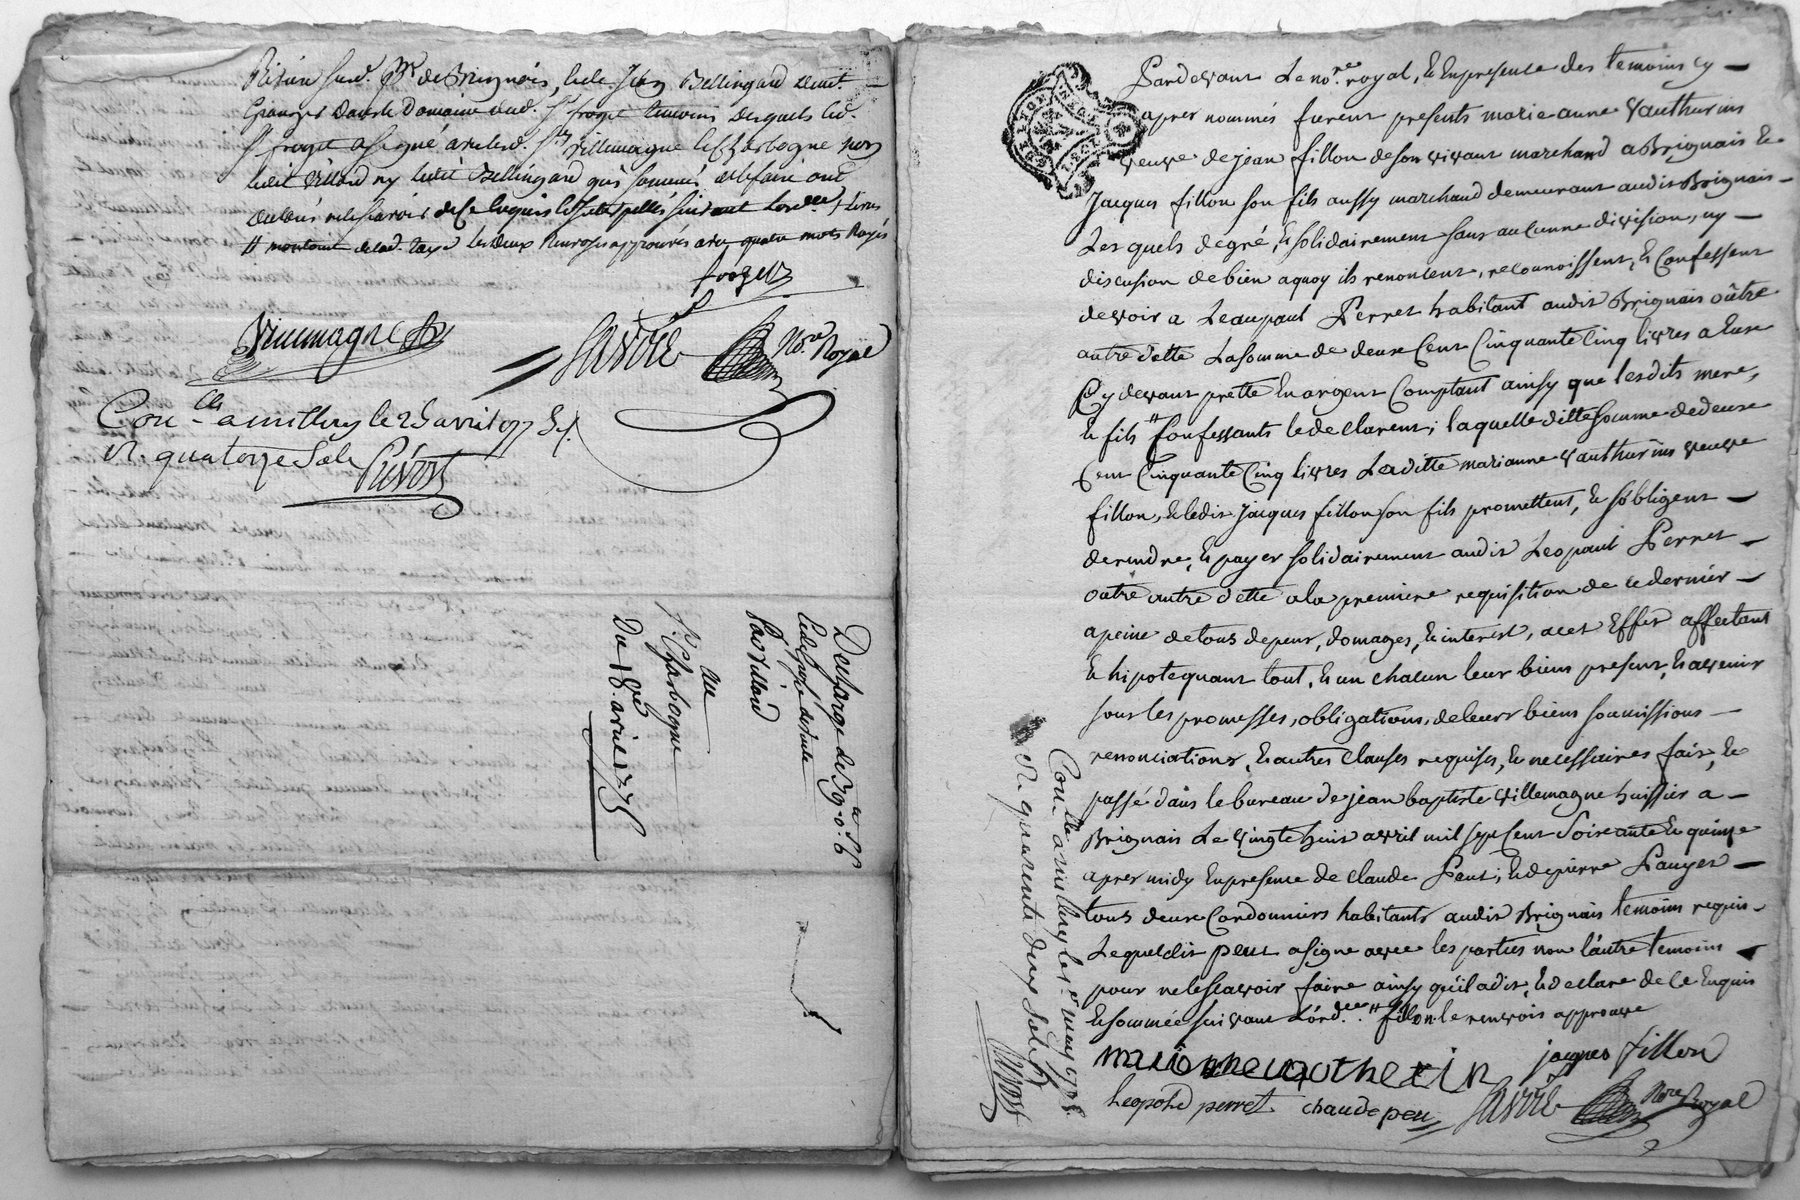 de Brignais, Bellingard
Granger dans le Domaine dud. Sr froget temoins lesquels led.
Sr froget a signé avec led. Srs Villemagne & Charbogne non
ledit Villard ny ledit Bellingard qui sommés de le faire ont
declaré ne le scavoir de ce enquis suivant l'ordce
Les deux Renvois approuvés avec quatre mots Rayés
froget
Villemagne
Savoie Nore Royal
Conlle a millery le 25 avril 1775
R. quatorze sols
Prévost
Descharge de 390 6
Par Villard
Au
Sr Charbogne
Du 18 avril 1775
Pardevant Le nore royal, & En presence des temoins cy
apres nommés furent presents marie anne Vautherins
veuve de jean fillon de son vivant marchand a Brignais &
Jacques fillon son fils aussy marchand demeurant audit Brignais
Lesquels de gré, & solidairement sans aucunne division, ny
discusion de bien a quoy ils renoncent, reconnoissent, & Confessent
devoir a Perret habitant audit Brignais oûtre
autre dette La somme de deux Cent Cinquante Cinq livres a Eux
Cy devant prette En argent Comptant ainsy que lesdits mere,
& fils Confessants le declarent; laquelle ditte somme de deux
Cent Cinquante Cinq livres Laditte marianne Vautherins veuve
fillon, & ledit jacques fillon son fils promettent, & s'obligent
de rendre, & payer solidairement audit Leopaul Perret
outre autre dette a la premiere requisition de ce dernier
a peine de tous depens, domages, & interest, a cet Effet affectant
& hipotequant tout, & un chacun leur biens present, & avenir
sous les promesses, obligations, de leurs biens soumissions
renonciations, & autres Clauses requises, & necessaires fait, &
passé dans le bureau de jean baptiste Villemagne huissier a
Brignais Le Vingt huit avril mil sept Cent Soixante & quinze
apres midy En presence de Claude Peut; & de pierre Pauget
tous deux Cordonniers habitants audit Brignais temoins requis
Lequel dit peut a signe avec les parties non l'autre temoins
pour ne le scavoir faire ainsy qu'il a dit, & declare de Ce Enquis
& sommée suivant L'ordce fillon le renvois approuve
marionne vautherin jacques fillon
leopold perret claude peu Savoie Nore Royal
Conlle a millery le 1er may 1775
R. quarente deux sols
Prévost